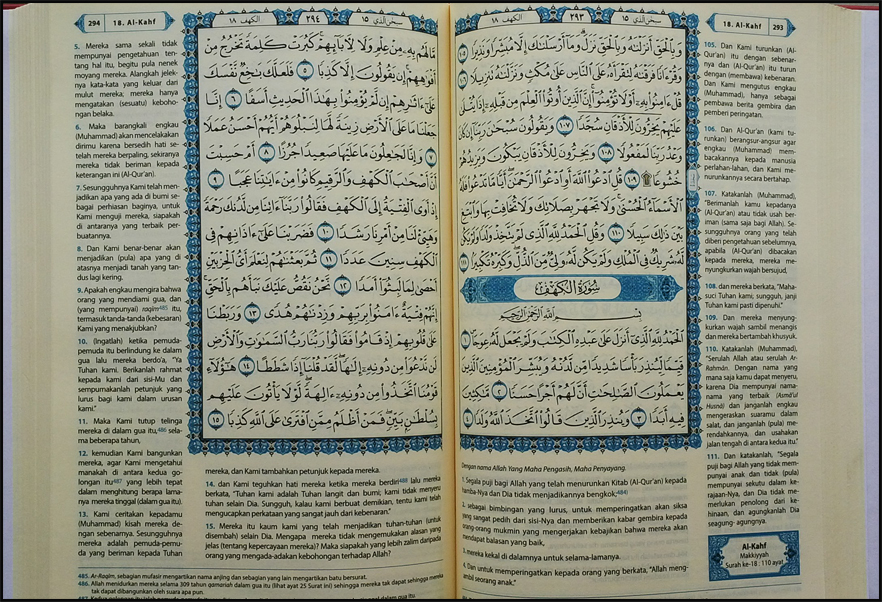 18. Al-Kahf 293
الكهف ١٨ ٢٩٣ سبحن الذي ١٥
وَبِالْحَقِّ أَنزَلْنَٰهُ وَبِالْحَقِّ نَزَلَ وَمَا أَرْسَلْنَٰكَ إِلَّا مُبَشِّرًا وَنَذِيرًا ١٠٥
وَقُرْءَانًا فَرَقْنَٰهُ لِتَقْرَأَهُۥ عَلَى النَّاسِ عَلَىٰ مُكْثٍ وَنَزَّلْنَٰهُ تَنزِيلًا ١٠٦
قُلْ ءَامِنُوا بِهِۦٓ أَوْ لَا تُؤْمِنُوٓا إِنَّ الَّذِينَ أُوتُوا الْعِلْمَ مِن قَبْلِهِۦٓ إِذَا يُتْلَىٰ
عَلَيْهِمْ يَخِرُّونَ لِلْأَذْقَانِ سُجَّدًا ١٠٧ وَيَقُولُونَ سُبْحَٰنَ رَبِّنَآ إِن كَانَ
وَعْدُ رَبِّنَا لَمَفْعُولًا ١٠٨ وَيَخِرُّونَ لِلْأَذْقَانِ يَبْكُونَ وَيَزِيدُهُمْ
خُشُوعًا ۩ ١٠٩ قُلِ ادْعُوا اللَّهَ أَوِ ادْعُوا الرَّحْمَٰنَ أَيًّا مَّا تَدْعُوا فَلَهُ
الْأَسْمَآءُ الْحُسْنَىٰ وَلَا تَجْهَرْ بِصَلَاتِكَ وَلَا تُخَافِتْ بِهَا وَابْتَغِ
بَيْنَ ذَٰلِكَ سَبِيلًا ١١٠ وَقُلِ الْحَمْدُ لِلَّهِ الَّذِي لَمْ يَتَّخِذْ وَلَدًا وَلَمْ يَكُن
لَّهُۥ شَرِيكٌ فِي الْمُلْكِ وَلَمْ يَكُن لَّهُۥ وَلِيٌّ مِّنَ الذُّلِّ وَكَبِّرْهُ تَكْبِيرًا ١١١
سُورَةُ الْكَهْفِ
بِسْمِ اللَّهِ الرَّحْمَٰنِ الرَّحِيمِ
الْحَمْدُ لِلَّهِ الَّذِيٓ أَنزَلَ عَلَىٰ عَبْدِهِ الْكِتَٰبَ وَلَمْ يَجْعَل لَّهُۥ عِوَجًا ١
قَيِّمًا لِّيُنذِرَ بَأْسًا شَدِيدًا مِّن لَّدُنْهُ وَيُبَشِّرَ الْمُؤْمِنِينَ الَّذِينَ
يَعْمَلُونَ الصَّٰلِحَٰتِ أَنَّ لَهُمْ أَجْرًا حَسَنًا ٢ مَّٰكِثِينَ
فِيهِ أَبَدًا ٣ وَيُنذِرَ الَّذِينَ قَالُوا اتَّخَذَ اللَّهُ وَلَدًا ٤
105. Dan Kami turunkan (Al-
Qur'an) itu dengan sebenar-
nya dan (Al-Qur'an) itu turun
dengan (membawa) kebenaran.
Dan Kami mengutus engkau
(Muhammad), hanya sebagai
pembawa berita gembira dan
pemberi peringatan.
106. Dan Al-Qur'an (kami tu-
runkan) berangsur-angsur agar
engkau (Muhammad) mem-
bacakannya kepada manusia
perlahan-lahan, dan Kami me-
nurunkannya secara bertahap.
107. Katakanlah (Muhammad),
"Berimanlah kamu kepadanya
(Al-Qur'an) atau tidak usah ber-
iman (sama saja bagi Allah). Se-
sungguhnya orang yang telah
diberi pengetahuan sebelumnya,
apabila (Al-Qur'an) dibacakan
kepada mereka, mereka me-
nyungkurkan wajah bersujud,
108. dan mereka berkata, "Maha-
suci Tuhan kami; sungguh, janji
Tuhan kami pasti dipenuhi."
109. Dan mereka menyung-
kurkan wajah sambil menangis
dan mereka bertambah khusyuk.
110. Katakanlah (Muhammad),
"Serulah Allah atau serulah Ar-
Rahmān. Dengan nama yang
mana saja kamu dapat menyeru,
karena Dia mempunyai nama-
nama yang terbaik (Asmā'ul
Husnā) dan janganlah engkau
mengeraskan suaramu dalam
salat, dan janganlah (pula) me-
rendahkannya, dan usahakan
jalan tengah di antara kedua itu."
111. Dan katakanlah, "Segala
puji bagi Allah yang tidak mem-
punyai anak dan tidak (pula)
mempunyai sekutu dalam ke-
rajaan-Nya, dan Dia tidak me-
merlukan penolong dari ke-
hinaan, dan agungkanlah Dia
seagung-agungnya.
Al-Kahf
Makkiyyah
Surah ke-18 : 110 ayat
Dengan nama Allah Yang Maha Pengasih, Maha Penyayang.
1. Segala puji bagi Allah yang telah menurunkan Kitab (Al-Qur'an) kepada
hamba-Nya dan Dia tidak menjadikannya bengkok;484)
2. sebagai bimbingan yang lurus, untuk memperingatkan akan siksa
yang sangat pedih dari sisi-Nya dan memberikan kabar gembira kepada
orang-orang mukmin yang mengerjakan kebajikan bahwa mereka akan
mendapat balasan yang baik,
3. mereka kekal di dalamnya untuk selama-lamanya.
4. Dan untuk memperingatkan kepada orang yang berkata, "Allah meng-
ambil seorang anak."
294 18. Al-Kahf
الكهف ١٨ ٢٩٤ سبحن الذي ١٥
مَّا لَهُم بِهِۦ مِنْ عِلْمٍ وَلَا لِـَٔابَآئِهِمْ كَبُرَتْ كَلِمَةً تَخْرُجُ مِنْ
أَفْوَٰهِهِمْ إِن يَقُولُونَ إِلَّا كَذِبًا ٥ فَلَعَلَّكَ بَٰخِعٌ نَّفْسَكَ
عَلَىٰٓ ءَاثَٰرِهِمْ إِن لَّمْ يُؤْمِنُوا بِهَٰذَا الْحَدِيثِ أَسَفًا ٦ إِنَّا
جَعَلْنَا مَا عَلَى الْأَرْضِ زِينَةً لَّهَا لِنَبْلُوَهُمْ أَيُّهُمْ أَحْسَنُ عَمَلًا
٧ وَإِنَّا لَجَٰعِلُونَ مَا عَلَيْهَا صَعِيدًا جُرُزًا ٨ أَمْ حَسِبْتَ
أَنَّ أَصْحَٰبَ الْكَهْفِ وَالرَّقِيمِ كَانُوا مِنْ ءَايَٰتِنَا عَجَبًا ٩
إِذْ أَوَى الْفِتْيَةُ إِلَى الْكَهْفِ فَقَالُوا رَبَّنَآ ءَاتِنَا مِن لَّدُنكَ رَحْمَةً
وَهَيِّئْ لَنَا مِنْ أَمْرِنَا رَشَدًا ١٠ فَضَرَبْنَا عَلَىٰٓ ءَاذَانِهِمْ فِي
الْكَهْفِ سِنِينَ عَدَدًا ١١ ثُمَّ بَعَثْنَٰهُمْ لِنَعْلَمَ أَيُّ الْحِزْبَيْنِ
أَحْصَىٰ لِمَا لَبِثُوٓا أَمَدًا ١٢ نَّحْنُ نَقُصُّ عَلَيْكَ نَبَأَهُم بِالْحَقِّ
إِنَّهُمْ فِتْيَةٌ ءَامَنُوا بِرَبِّهِمْ وَزِدْنَٰهُمْ هُدًى ١٣ وَرَبَطْنَا
عَلَىٰ قُلُوبِهِمْ إِذْ قَامُوا فَقَالُوا رَبُّنَا رَبُّ السَّمَٰوَٰتِ وَالْأَرْضِ
لَن نَّدْعُوَا مِن دُونِهِۦٓ إِلَٰهًا لَّقَدْ قُلْنَآ إِذًا شَطَطًا ١٤ هَٰٓؤُلَآءِ
قَوْمُنَا اتَّخَذُوا مِن دُونِهِۦٓ ءَالِهَةً لَّوْلَا يَأْتُونَ عَلَيْهِم
بِسُلْطَٰنٍ بَيِّنٍ فَمَنْ أَظْلَمُ مِمَّنِ افْتَرَىٰ عَلَى اللَّهِ كَذِبًا ١٥
5. Mereka sama sekali tidak
mempunyai pengetahuan ten-
tang hal itu, begitu pula nenek
moyang mereka. Alangkah jelek-
nya kata-kata yang keluar dari
mulut mereka; mereka hanya
mengatakan (sesuatu) keboho-
ngan belaka.
6. Maka barangkali engkau
(Muhammad) akan mencelakakan
dirimu karena bersedih hati se-
telah mereka berpaling, sekiranya
mereka tidak beriman kepada
keterangan ini (Al-Qur'an).
7. Sesungguhnya Kami telah men-
jadikan apa yang ada di bumi se-
bagai perhiasan baginya, untuk
Kami menguji mereka, siapakah
di antaranya yang terbaik per-
buatannya.
8. Dan Kami benar-benar akan
menjadikan (pula) apa yang di
atasnya menjadi tanah yang tan-
dus lagi kering.
9. Apakah engkau mengira bahwa
orang yang mendiami gua, dan
(yang mempunyai) raqim485 itu,
termasuk tanda-tanda (kebesaran)
Kami yang menakjubkan?
10. (Ingatlah) ketika pemuda-
pemuda itu berlindung ke dalam
gua lalu mereka berdo'a, "Ya
Tuhan kami. Berikanlah rahmat
kepada kami dari sisi-Mu dan
sempurnakanlah petunjuk yang
lurus bagi kami dalam urusan
kami."
11. Maka Kami tutup telinga
mereka di dalam gua itu,486 sela-
ma beberapa tahun,
12. kemudian Kami bangunkan
mereka, agar Kami mengetahui
manakah di antara kedua go-
longan itu487 yang lebih tepat
dalam menghitung berapa lama-
nya mereka tinggal (dalam gua itu).
13. Kami ceritakan kepadamu
(Muhammad) kisah mereka de-
ngan sebenarnya. Sesungguhnya
mereka adalah pemuda-pemu-
da yang beriman kepada Tuhan
mereka, dan Kami tambahkan petunjuk kepada mereka.
14. dan Kami teguhkan hati mereka ketika mereka berdiri488 lalu mereka
berkata, "Tuhan kami adalah Tuhan langit dan bumi; kami tidak menyeru
tuhan selain Dia. Sungguh, kalau kami berbuat demikian, tentu kami telah
mengucapkan perkataan yang sangat jauh dari kebenaran."
15. Mereka itu kaum kami yang telah menjadikan tuhan-tuhan (untuk
disembah) selain Dia. Mengapa mereka tidak mengemukakan alasan yang
jelas (tentang kepercayaan mereka)? Maka siapakah yang lebih zalim daripada
orang yang mengada-adakan kebohongan terhadap Allah?
485. Ar-Raqim, sebagian mufasir mengartikan nama anjing dan sebagian yang lain mengartikan batu bersurat.
486. Allah menidurkan mereka selama 309 tahun qamariah dalam gua itu (lihat ayat 25 Surat ini) sehingga mereka tak dapat sehingga mereka
tak dapat dibangunkan oleh suara apa pun.